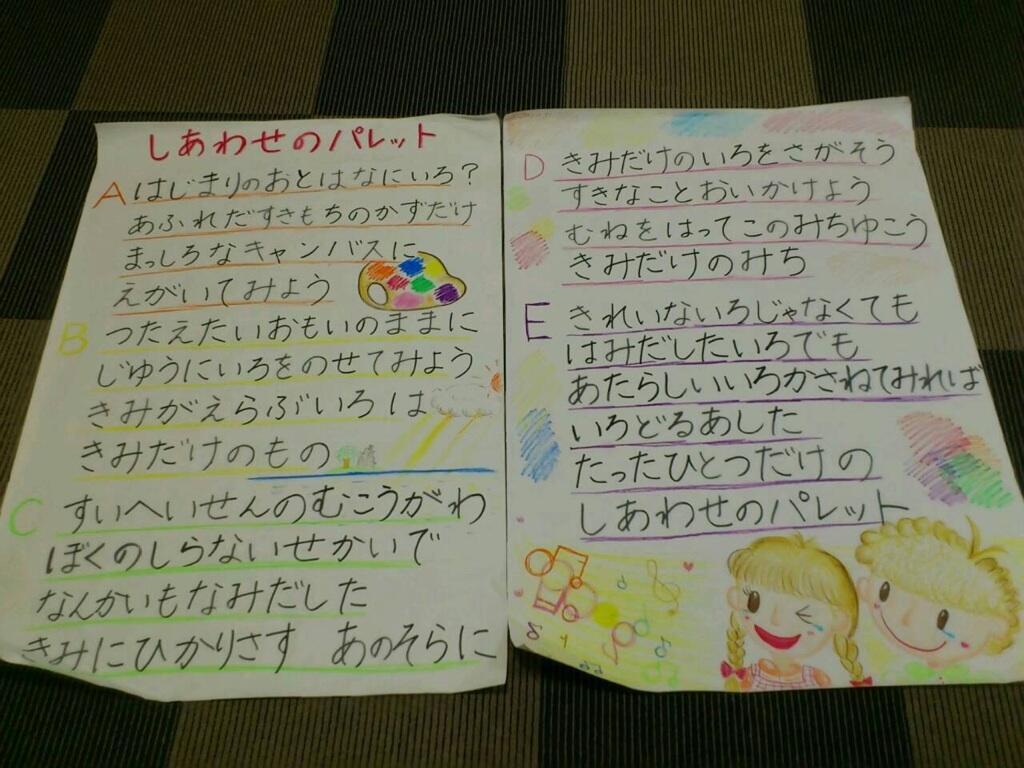 しあわせのパレット
A はじまりのおとはなにいろ?
あふれだすきもちのかずだけ
まっしろなキャンバスに
えがいてみよう
B つたえたいおもいのままに
じゆうにいろをのせてみよう
きみがえらぶいろは
きみだけのもの
C すいへいせんのむこうがわ
ぼくのしらないせかいで
なんかいもなみだした
きみにひかりさす あのそらに
D きみだけのいろをさがそう
すきなことおいかけよう
むねをはってこのみちゆこう
きみだけのみち
E きれいないろじゃなくても
はみだしたいろでも
あたらしいいろかさねてみれば
いろどるあした
たったひとつだけの
しあわせのパレット